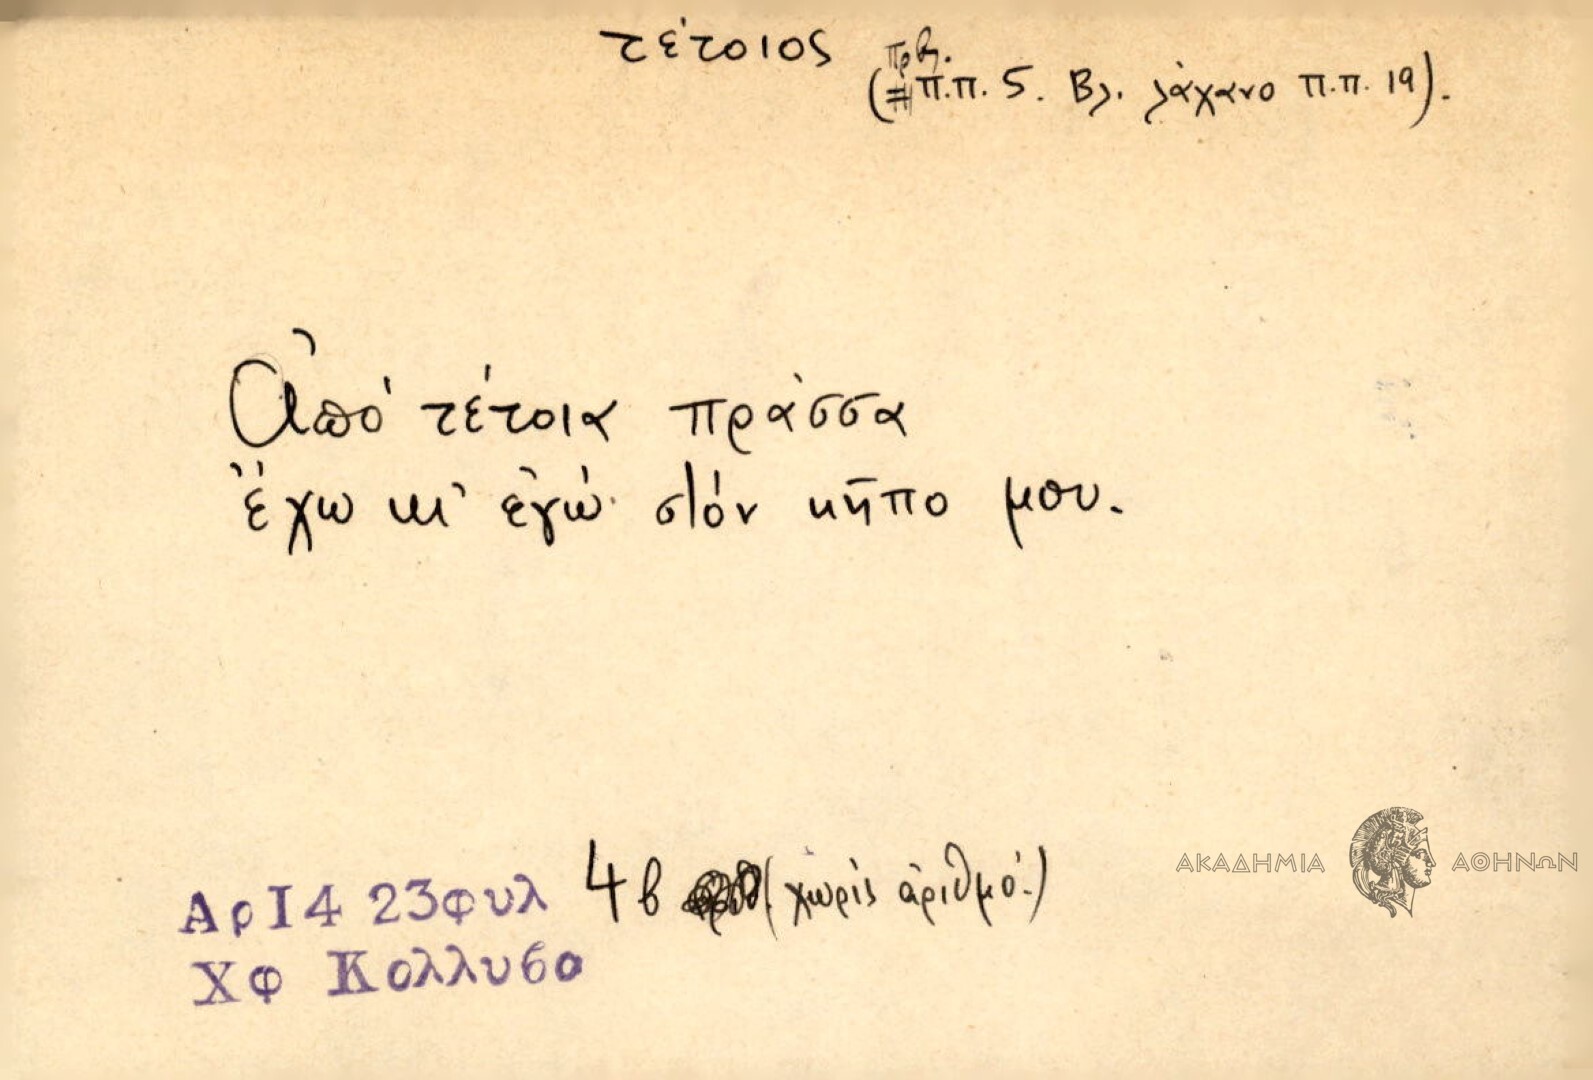 τέτοιος
πρβ.
(π.π. 5. Βλ. λάχανο π.π. 19).
Ἀπό τέτοια πράσσα
ἔχω κι' ἐγώ στόν κῆπο μου.
ΑΚΑΔΗΜΙΑ ΑΘΗΝΩΝ
Αρ14 23φυλ 4β (χωρίς ἀριθμό.)
Χφ Κολλυβα